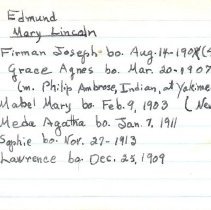 Edmund
Mary Lincoln
Firman Joseph bo. Aug-14-1908
Grace Agnes bo. Mar. 20-1907
(m. Philip Ambrose, Indian, at Yakima
Mabel Mary bo. Feb. 9, 1903
Meda Agatha bo. Jan. 7. 1911
Sophie bo. Nov. 27-1913
Lawrence bo. Dec. 25, 1909